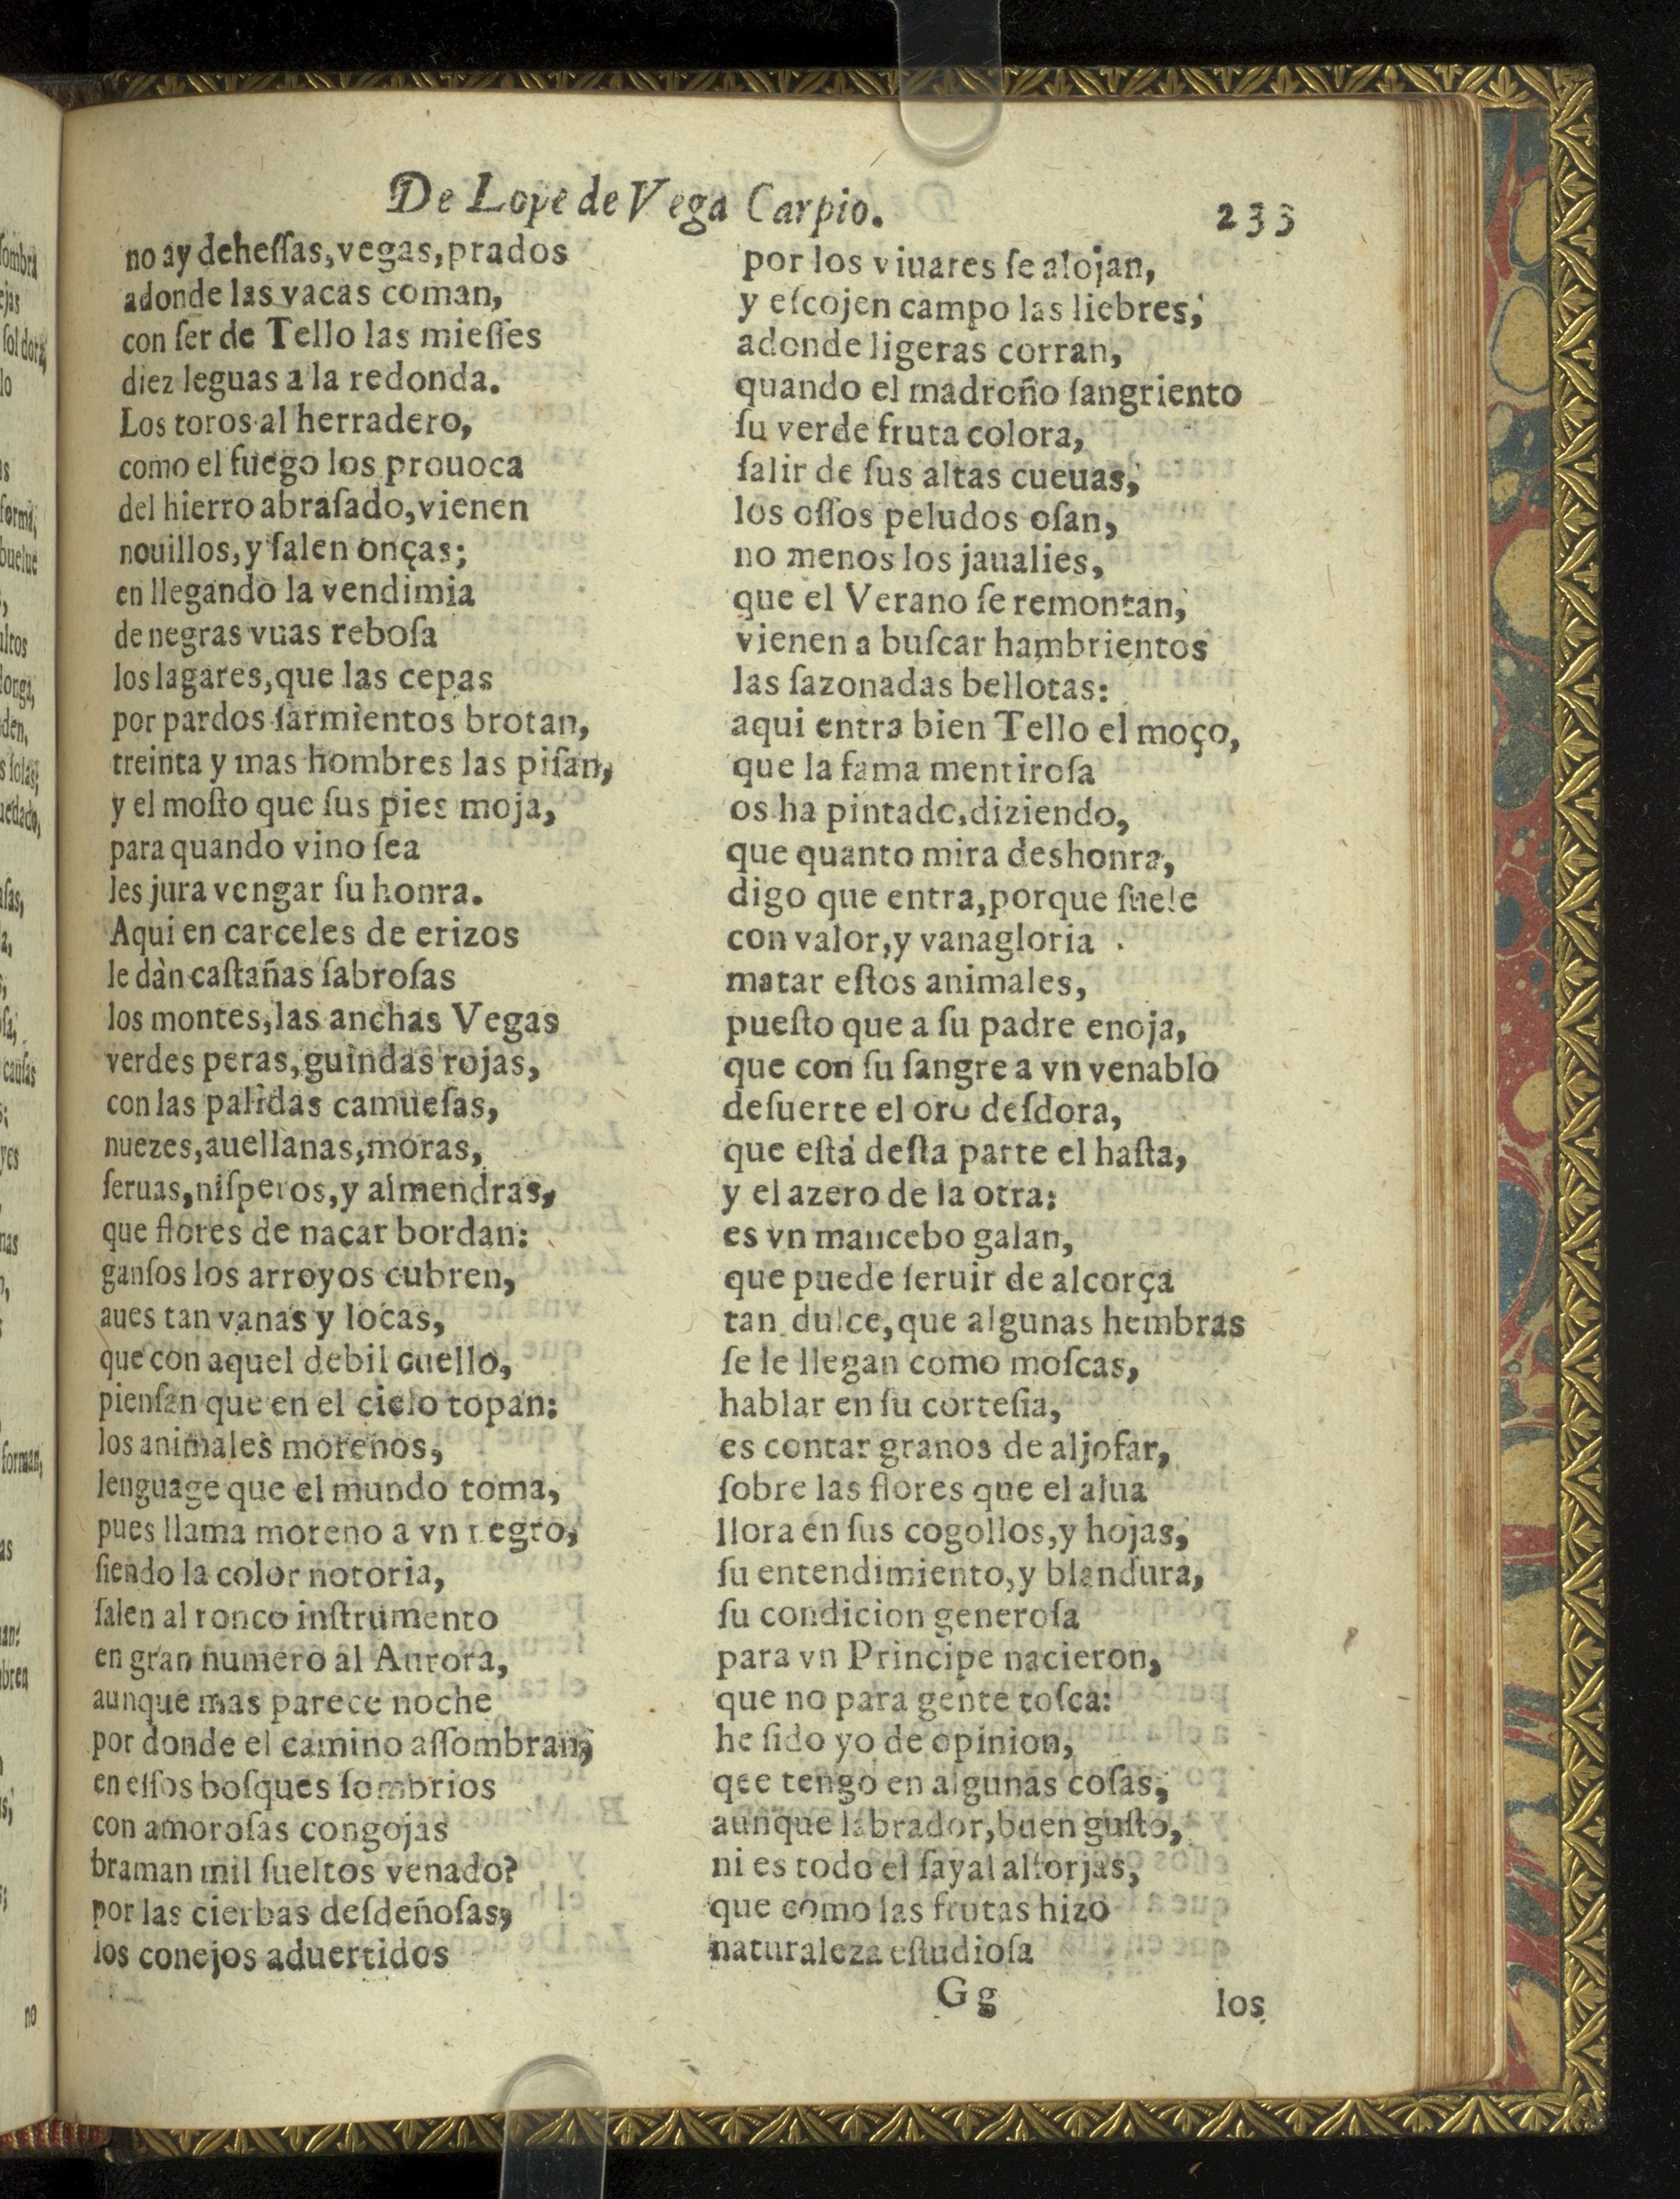 De Lope de Vega Carpio. 233
no ay dehessas, vegas, prados
adonde las vacas coman,
con ser de Tello las miesses
diez leguas a la redonda.
Los toros al herradero,
como el fuego los prouoca
del hierro abrasado, vienen
nouillos, y salen onças;
en llegando la vendimia
de negras vuas rebosa
los lagares, que las cepas
por pardos sarmientos brotan,
treinta y mas hombres las pisan,
y el mosto que sus pies moja,
para quando vino sea
les jura vengar su honra.
Aqui en carceles de erizos
le dàn castañas sabrosas
los montes, las anchas Vegas
verdes peras, guindas rojas,
con las palidas camuesas,
nuezes, auellanas, moras,
seruas, nisperos, y almendras,
que flores de nacar bordan:
gansos los arroyos cubren,
aues tan vanas y locas,
que con aquel debil cuello,
piensan que en el cielo topan:
los animales morenos,
lenguage que el mundo toma,
pues llama moreno a vn negro,
siendo la color notoria,
salen al ronco instrumento
en gran numero al Aurora,
aunque mas parece noche
por donde el camino assombran;
en essos bosques sombrios
con amorosas congojas
braman mil sueltos venado?
por las cierbas desdeñosas,
los conejos aduertidos
por los viuares se alojan,
y escojen campo las liebres,
adonde ligeras corran,
quando el madroño sangriento
su verde fruta colora,
salir de sus altas cueuas,
los ossos peludos osan,
no menos los jaualies,
que el Verano se remontan,
vienen a buscar hambrientos
las sazonadas bellotas:
aqui entra bien Tello el moço,
que la fama mentirosa
os ha pintado, diziendo,
que quanto mira deshonra,
digo que entra, porque suele
con valor, y vanagloria
matar estos animales,
puesto que a su padre enoja,
que con su sangre a vn venablo
desuerte el oro desdora,
que està desta parte el hasta,
y el azero de la otra:
es vn mancebo galan,
que puede seruir de alcorça
tan dulce, que algunas hembras
se le llegan como moscas,
hablar en su cortesia,
es contar granos de aljofar,
sobre las flores que el alua
llora en sus cogollos, y hojas,
su entendimiento, y blandura,
su condicion generosa
para vn Principe nacieron,
que no para gente tosca:
he sido yo de opinion,
qee tengo en algunas cosas,
aunque labrador, buen gusto,
ni es todo el sayal alforjas,
que como las frutas hizo
naturaleza estudiosa
Gg los